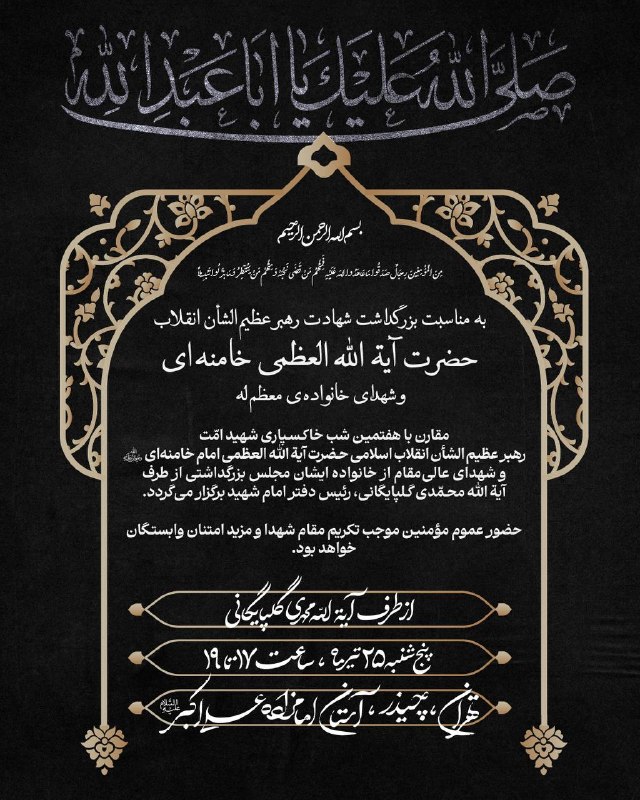 صَلَّی اللهُ عَلَیْكَ یا اَبا عَبْدِ اللهِ
بسم الله الرحمن الرحیم
مِنَ الْمُؤْمِنِينَ رِجَالٌ صَدَقُوا مَا عَاهَدُوا اللهَ عَلَيْهِ فَمِنْهُمْ مَنْ قَضَىٰ نَحْبَهُ وَمِنْهُمْ مَنْ يَنْتَظِرُ وَمَا بَدَّلُوا تَبْدِيلًا
به مناسبت بزرگداشت شهادت رهبر عظیم الشأن انقلاب
حضرت آیة الله العظمی خامنه ای
و شهدای خانواده‌ی معظم له
مقارن با هفتمین شب خاکسپاری شهید امّت
رهبر عظیم الشأن انقلاب اسلامی حضرت آیة الله العظمی امام خامنه‌ای
و شهدای عالی مقام از خانواده ایشان مجلس بزرگداشتی از طرف
آیة الله محمّدی گلپایگانی، رئیس دفتر امام شهید برگزار می‌گردد.
حضور عموم مؤمنین موجب تکریم مقام شهدا و مزید امتنان وابستگان
خواهد بود.
از طرف آیة الله محمدی گلپایگانی
پنج شنبه ۲۵ تیرماه، ساعت ۱۷ تا ۱۹
تهران، چیذر، آستان امامزاده علی اکبر علیه السلام